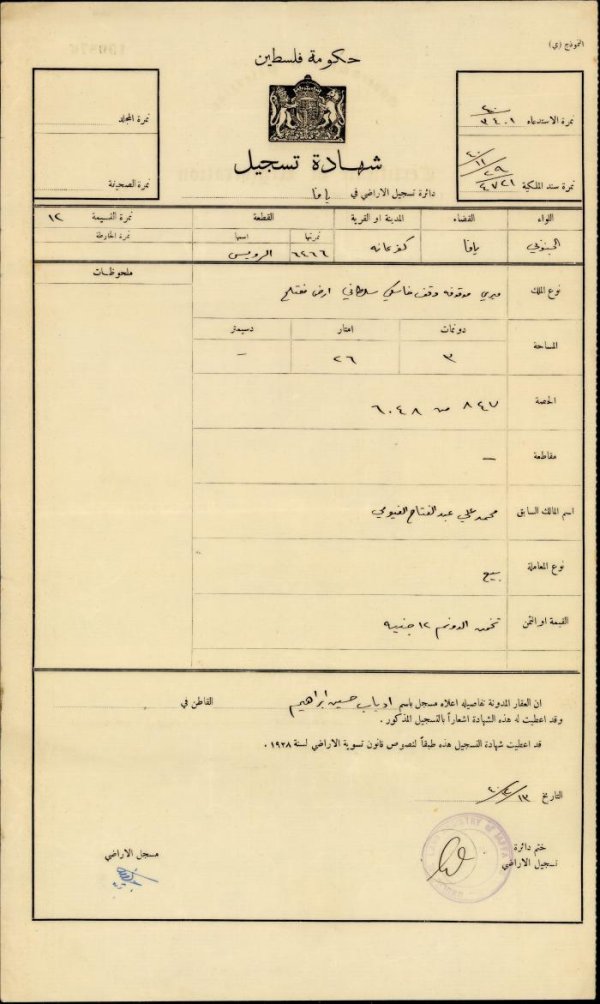 النموذج (ي)
حكومة فلسطين
نمرة المجلد
نمرة الصحيفة
شهادة تسجيل
دائرة تسجيل الاراضي في يافا
نمرة الاستدعاء ٣٤٠١/٤٠
نمرة سند الملكية ٤٧٢١
اللواء القضاء المدينة او القرية القطعة نمرة القسيمة ١٢
نمرتها اسمها نمرة الخارطة
الجنوبي يافا كفرعانه ٦٢٦٦ الرويس
نوع الملك ميري موقوفه وقف خاسكي سلطاني ارض مفتلح
ملحوظات
المساحة دونمات امتار دسيمتر
٣ ٢٦ –
الحصة ٨٤٧ من ٦٠٤٨
مقاطعة –
اسم المالك السابق محمد علي عبد الفتاح الفيومي
نوع المعاملة بيع
القيمة او الثمن تخمن الدونم ١٢ جنيه
ان العقار المدونة تفاصيله اعلاه مسجل باسم ادياب حسين ابراهيم القاطن في
وقد اعطيت له هذه الشهادة اشعاراً بالتسجيل المذكور .
قد اعطيت شهادة التسجيل هذه طبقاً لنصوص قانون تسوية الاراضي لسنة ١٩٢٨ .
التاريخ
ختم دائرة
تسجيل الاراضي
LAND REGISTRY OF JAFFA
مسجل الاراضي